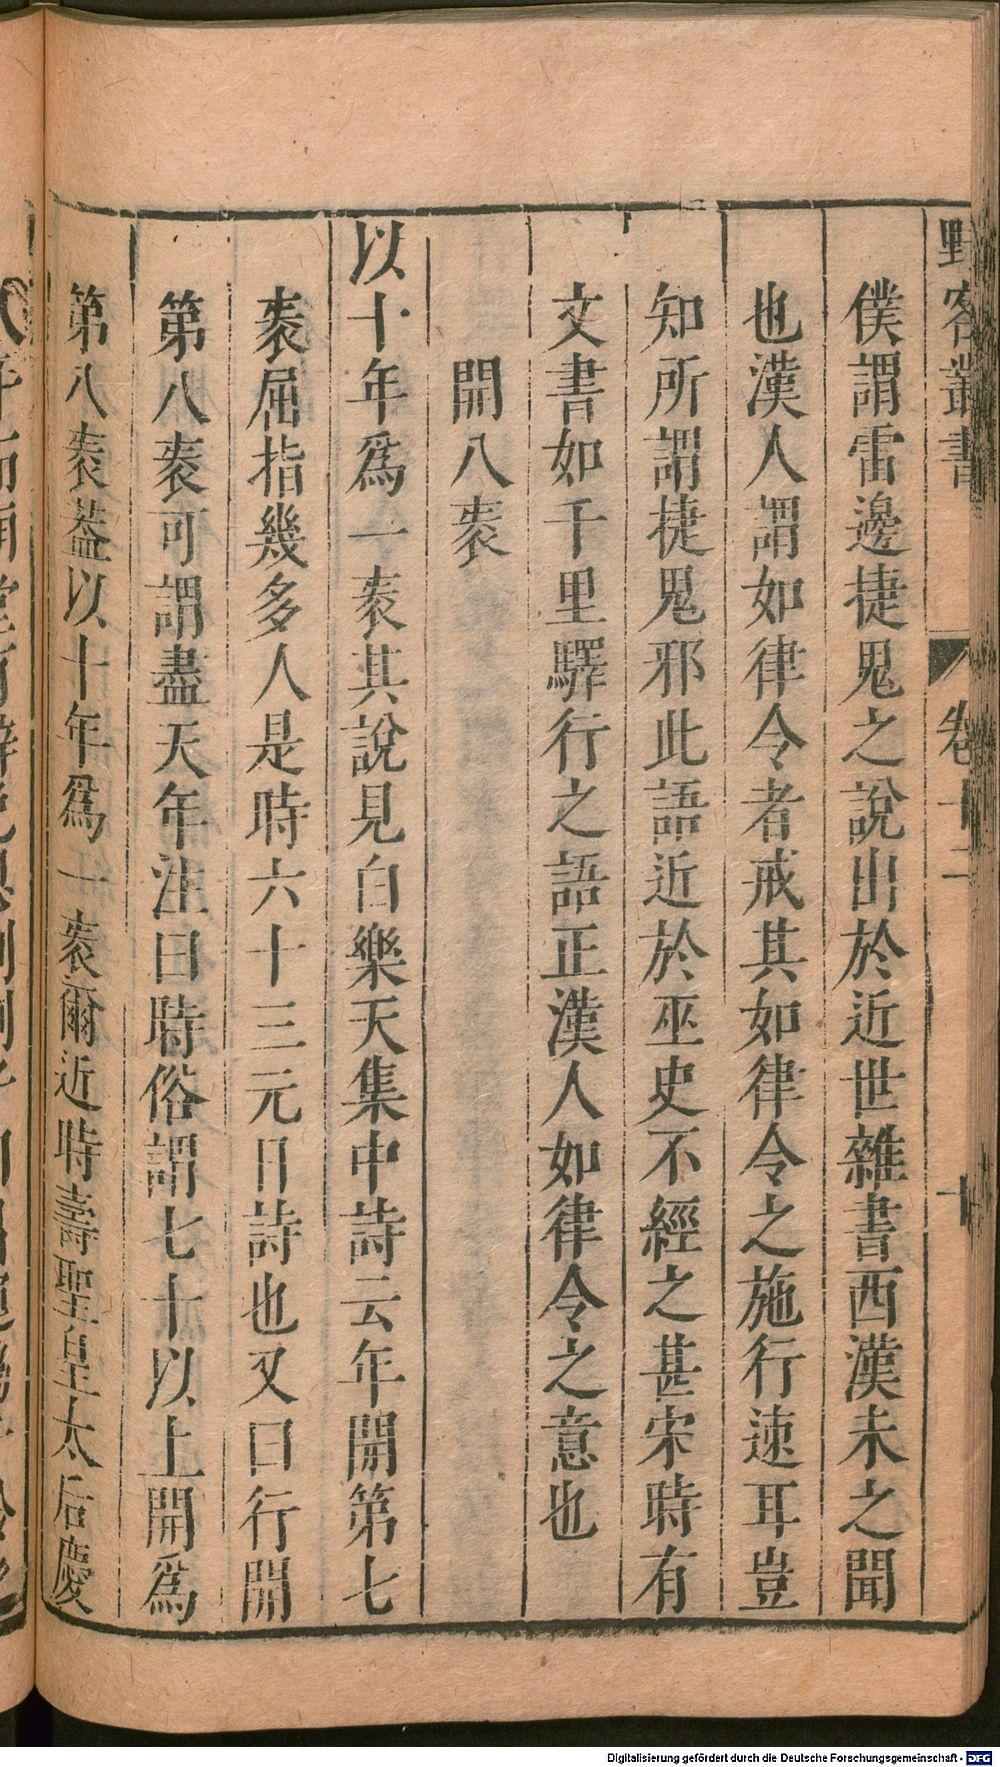 野客叢書 卷十二 十
僕謂雷邊捷鬼之說出於近世雜書西漢未之聞
也漢人謂如律令者戒其如律令之施行速耳豈
知所謂捷鬼邪此語近於巫史不經之甚宋時有
文書如千里驛行之語正漢人如律令之意也
開八袠
以十年爲一袠其說見白樂天集中詩云年開第七
袠屈指幾多人是時六十三元日詩也又曰行開
第八袠可謂盡天年注曰時俗謂七十以上開爲
第八袠葢以十年爲一袠爾近時壽聖皇太后慶
Digitalisierung gefördert durch die Deutsche Forschungsgemeinschaft - DFG